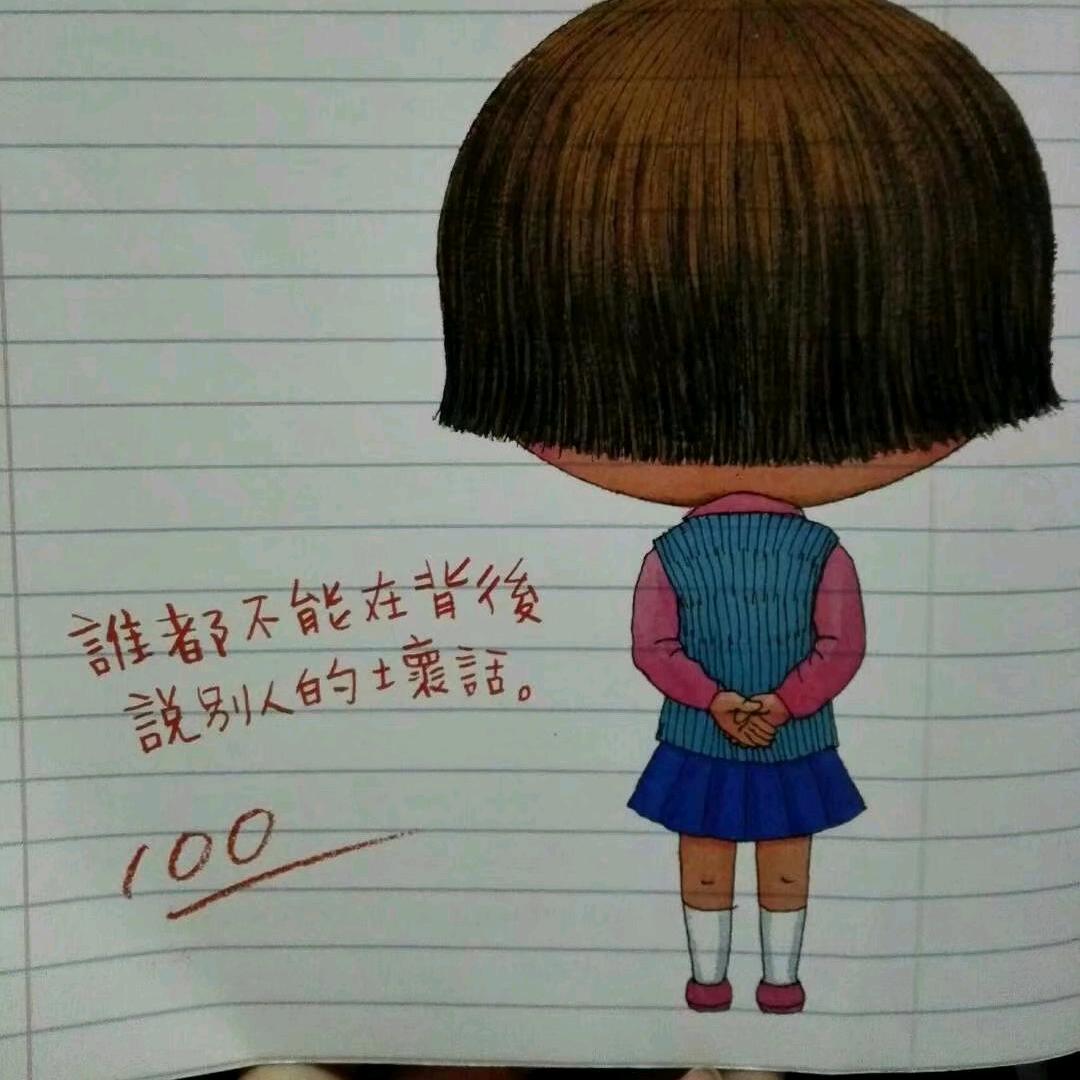 誰都不能在背後
說別人的壞話。
100